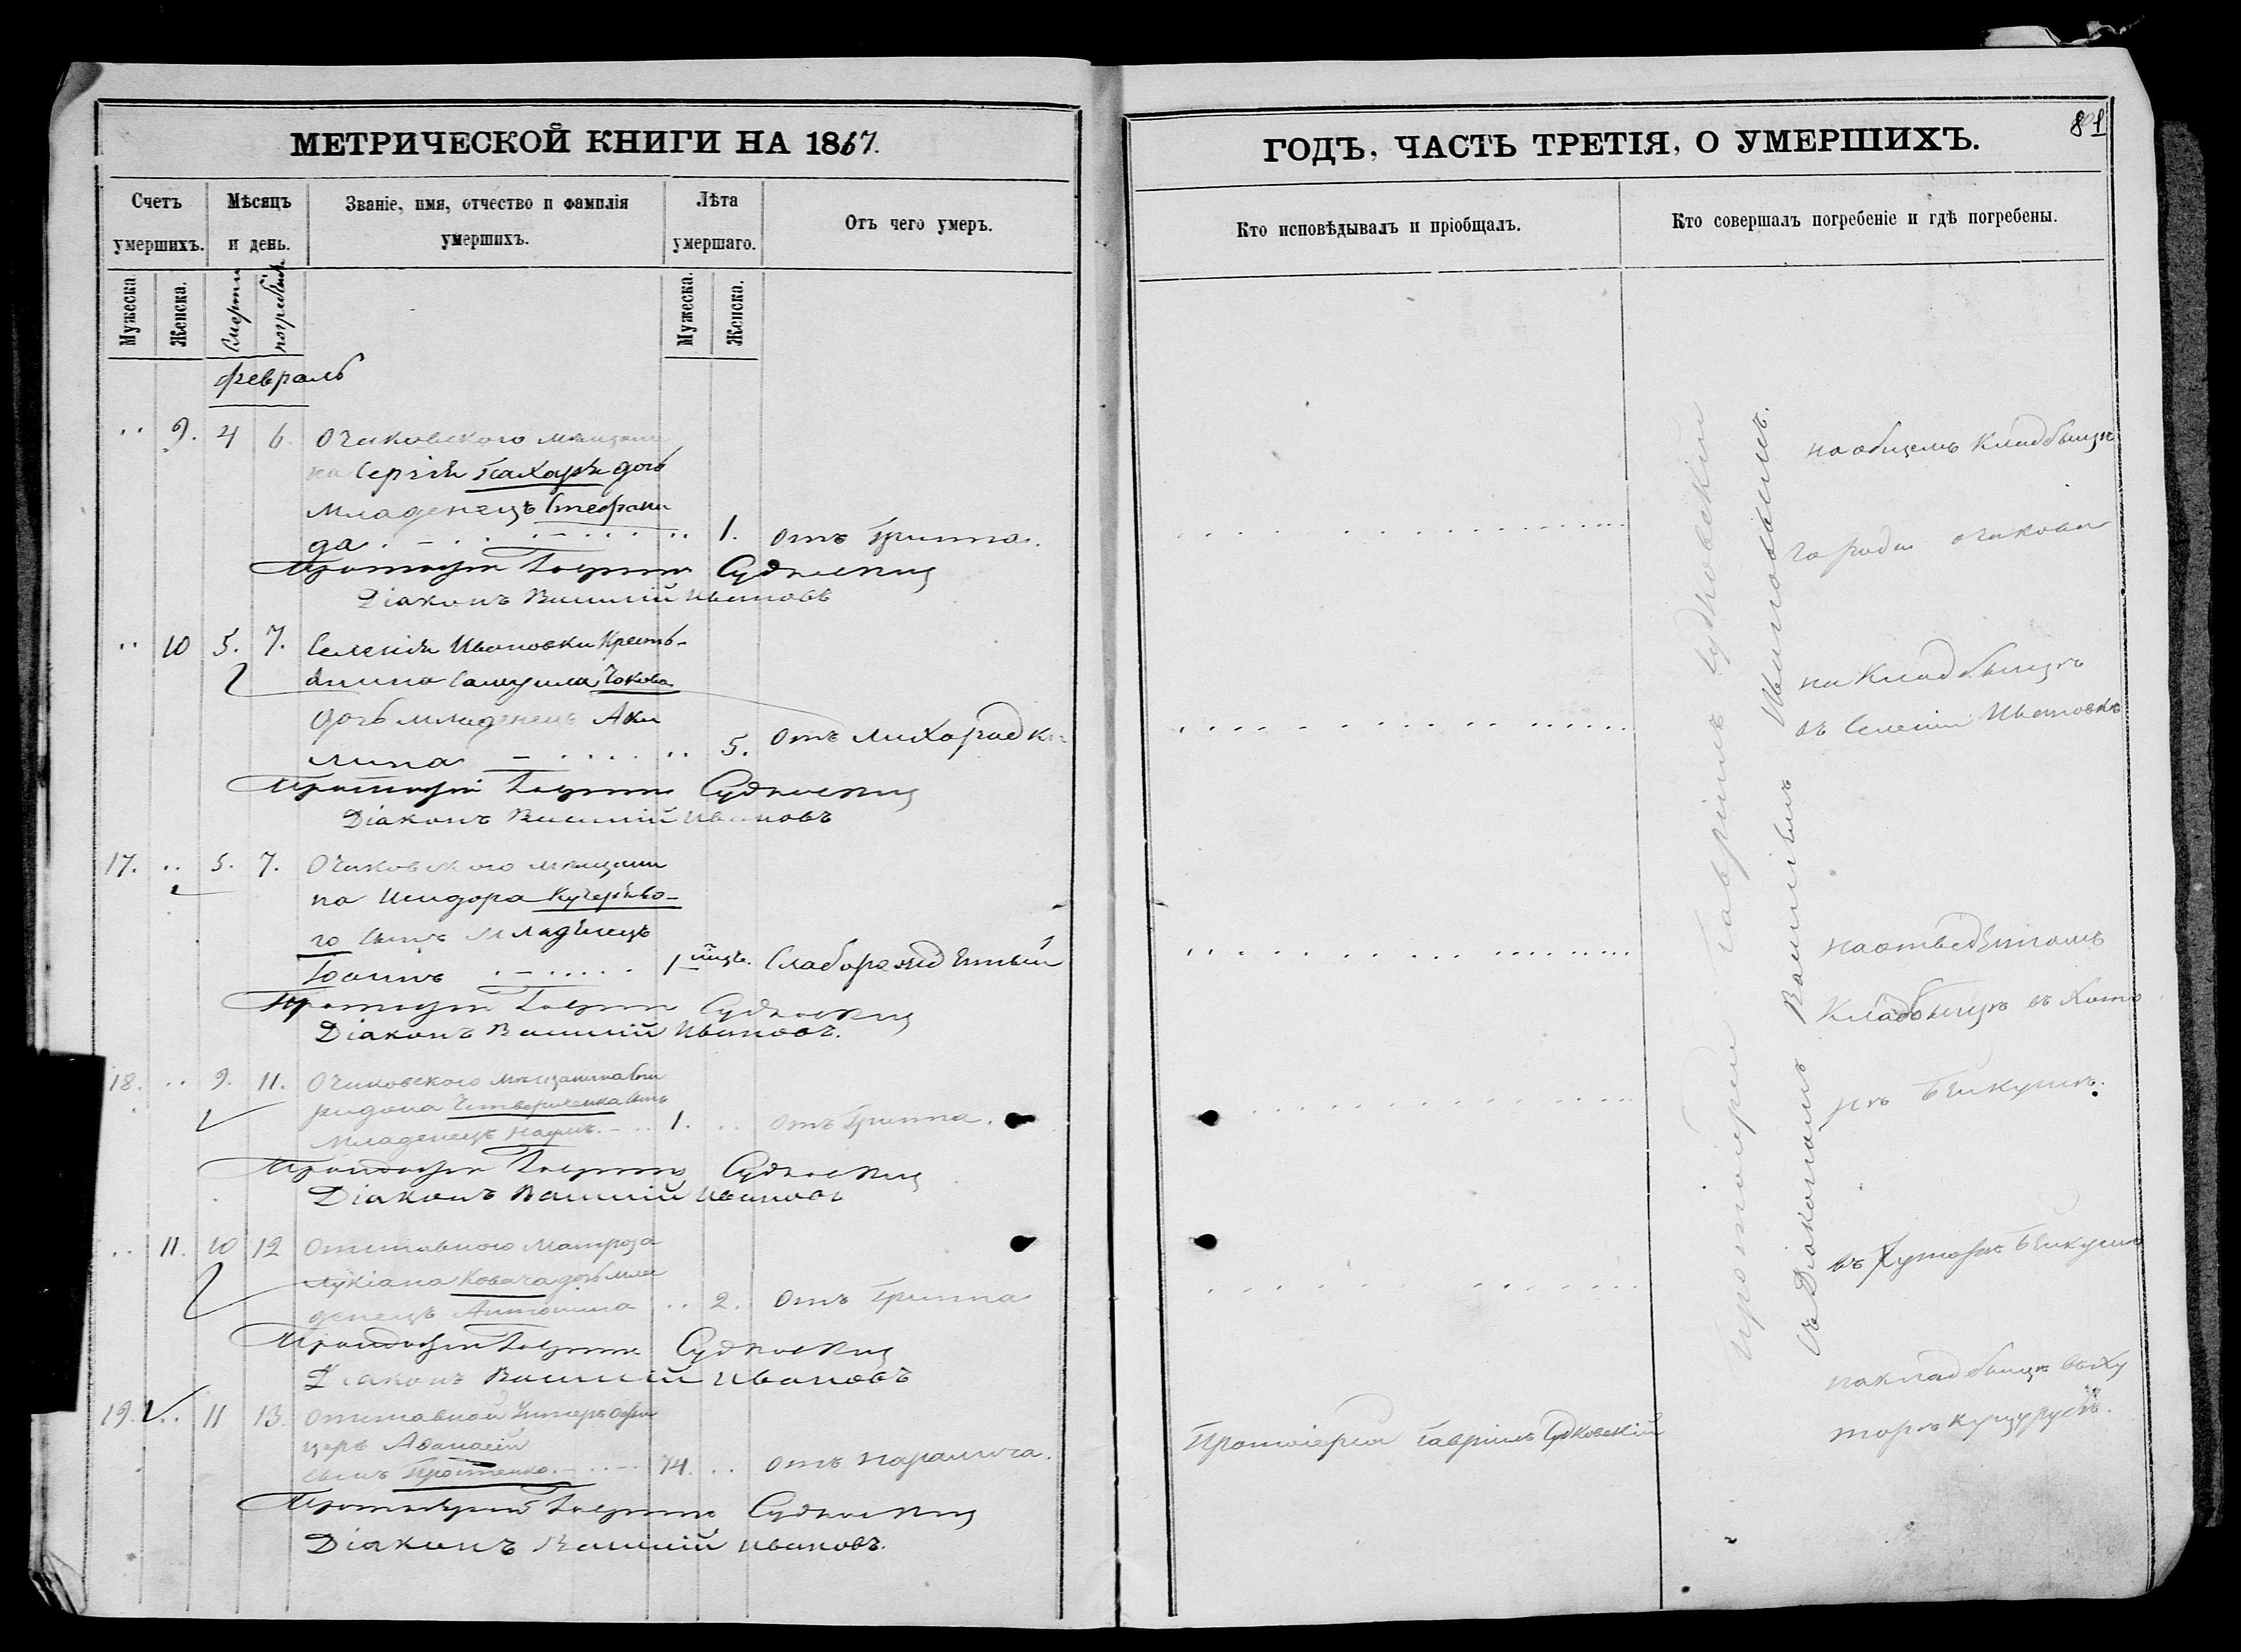 МЕТРИЧЕСКОЙ КНИГИ НА 1867.
Счетъ умершихъ.
Мѣсяцъ и день.
Званіе, имя, отчество и фамилія умершихъ.
Лѣта умершаго.
Отъ чего умеръ.
Мужеска
Женска.
Смерти
погребенія
Мужеска.
Женска.
февраль
9. 4 6. Очаковскаго мѣщани
на Сергѣя Пахаря дочь
Младенецъ Стефани
да 1. отъ гриппа.
Протоіерей Гавріилъ Судковскій
Діаконъ Василій Ивановъ
10 5. 7. Селенія Ивановки Кресть-
янина Самуила
дочь младенецъ Аки
лина 5. отъ лихорадки
Протоіерей Гавріилъ Судковскій
Діаконъ Василій Ивановъ
17. 5. 7. Очаковскаго мѣщани
на Исидора Кучеряво-
го сынъ Младенецъ
Іоаннъ 1 мѣц. Слаборожденный
Протоіерей Гавріилъ Судковскій
Діаконъ Василій Ивановъ.
18. 9. 11. Очаковского мѣщанина Спи
ридона Четвериченка сынъ
Младенецъ Наумъ. 1. отъ гриппа.
Протоіерей Гавріилъ Судковскій
Діаконъ Василій Ивановъ
11. 10 12 Отставного Матроза
Лукіана Ковача дочь мла
денецъ Антонина 2. отъ гриппа
Протоіерей Гавріилъ Судковскій
Діаконъ Василій Ивановъ
19. 11 13. Отставной Унтеръ Офи
церъ Афанасій
сынъ 74. отъ паралича.
Протоіерей Гавріилъ Судковскій
Діаконъ Василій Ивановъ.
ГОДЪ, ЧАСТЬ ТРЕТІЯ, О УМЕРШИХЪ.
801
Кто исповѣдывалъ и пріобщалъ.
Кто совершалъ погребеніе и гдѣ погребены.
Протоіерей Гавріилъ Судковскій
Протоіерей Гавріилъ Судковскій
съ Діакономъ Василіемъ Ивановымъ.
на общемъ кладбищѣ
города Очакова
на кладбищѣ
въ селеніи Ивановкѣ
на отведенномъ
Кладбищѣ въ Хуто
рѣ Бейкушѣ.
въ Хуторѣ Бейкушѣ
на кладбищѣ въ ху
торѣ Куцурубѣ.